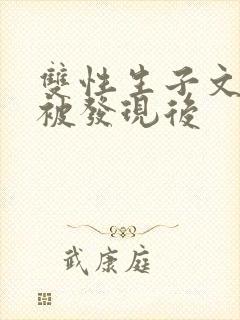 雙性生子文
被發現後
武康庭